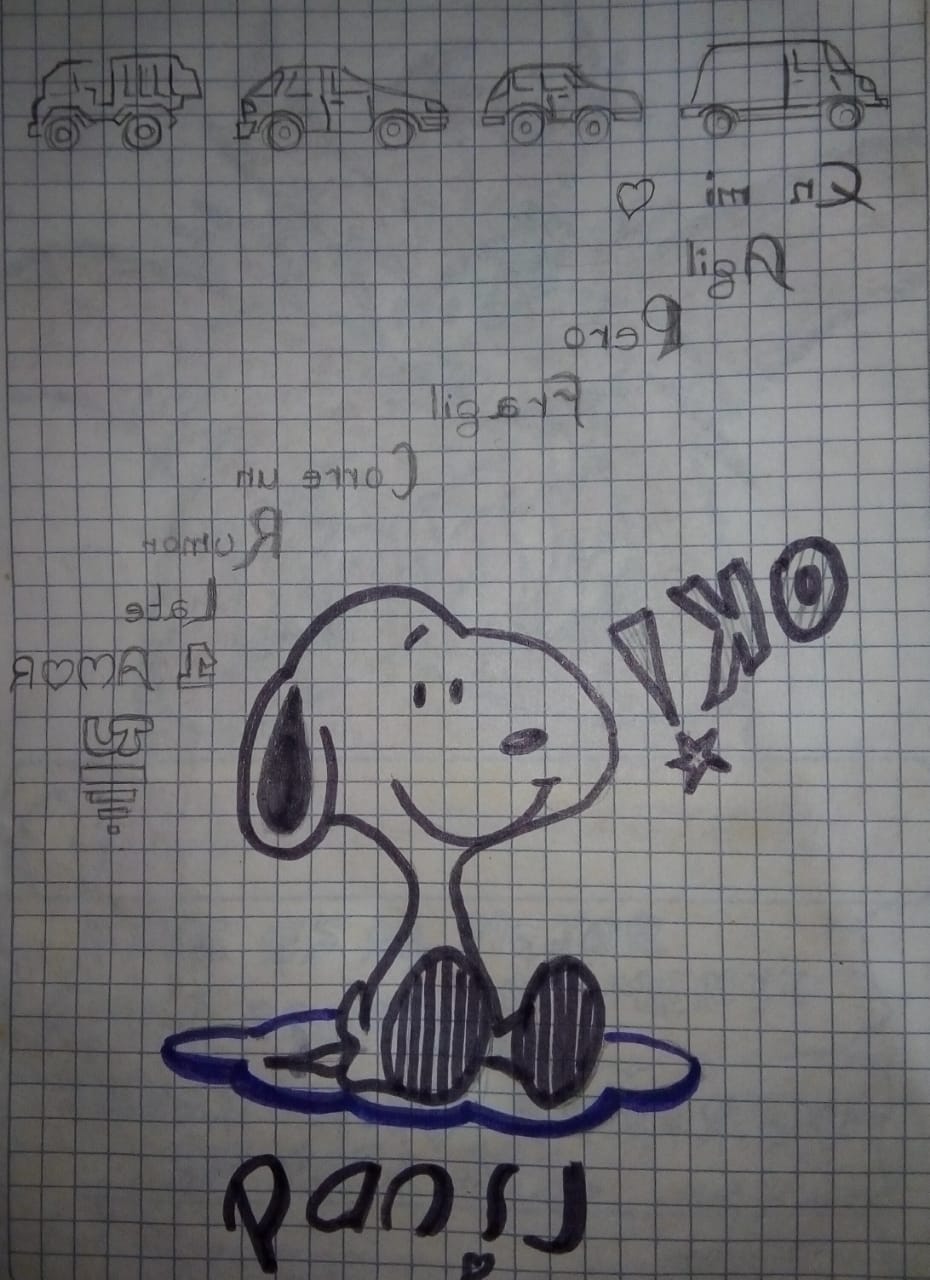 En mi ♡
Agil
Pero
Fragil
Corre un
Rumor
Late
El AMOR
OK!